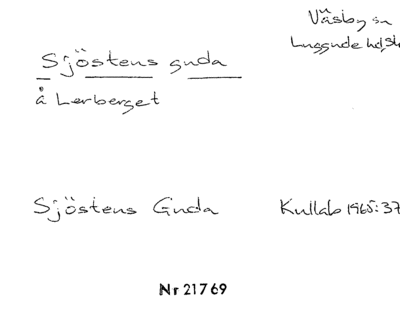 Väsby sn
Luggude hd, sk
Sjöstens gnda
å Lerberget
Sjöstens Gnda Kullab 1965:37
Nr 21769